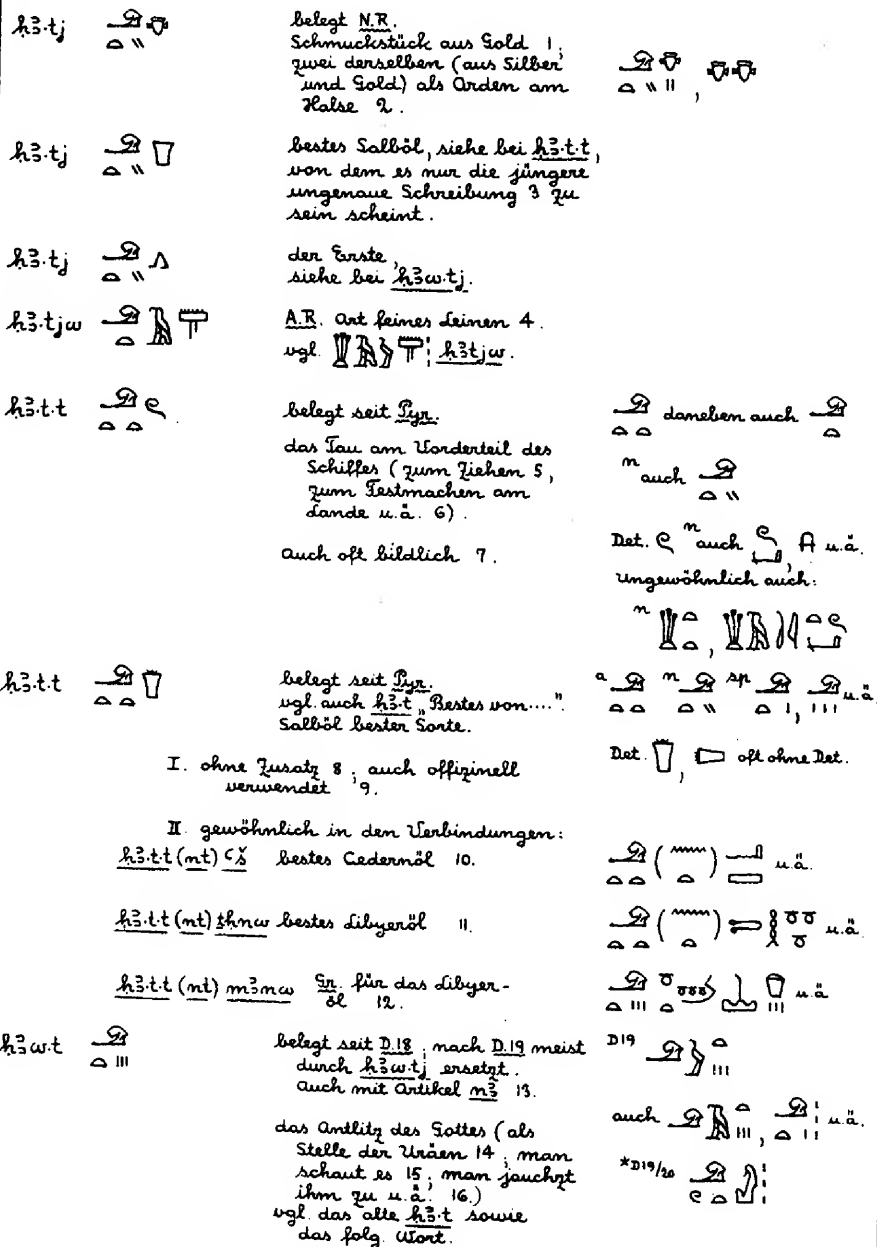 ḥꜣ·tj belegt N.R.
Schmuckstück aus Gold 1;
zwei derselben (aus Silber
und Gold) als Orden am
Halse 2. ,
ḥꜣ·tj bestes Salböl, siehe bei ḥꜣ·t·t,
von dem es nur die jüngere
ungenaue Schreibung 3 zu
sein scheint.
ḥꜣ·tj der Erste,
siehe bei ḥꜣw·tj.
ḥꜣ·tjw A.R. Art feines Leinen 4.
vgl. ḥꜣtjw.
ḥꜣ·t·t belegt seit Pyr. daneben auch
das Tau am Vorderteil des
Schiffes (zum Ziehen 5, n auch
zum Festmachen am
Lande u.ä. 6).
auch oft bildlich 7. Det. n auch , u.ä.
ungewöhnlich auch:
n ,
ḥꜣ·t·t belegt seit Pyr. a n sp , u.ä.
vgl. auch ḥꜣ·t „Bestes von....".
Salböl bester Sorte.
I. ohne Zusatz 8; auch offizinell Det. , oft ohne Det.
verwendet 9.
II. gewöhnlich in den Verbindungen:
ḥꜣ·t·t (nt) ꜥš bestes Cedernöl 10. ( ) u.ä.
ḥꜣ·t·t (nt) ṯḥnw bestes Libyeröl 11. ( ) u.ä.
ḥꜣ·t·t (nt) mꜣnw Gr. für das Libyer- u.ä
öl 12.
ḥꜣw·t belegt seit D.18; nach D.19 meist D19
durch ḥꜣw·tj ersetzt.
auch mit Artikel nꜣ 13. auch , u.ä.
das Antlitz des Gottes (als
Stelle der Uräen 14; man
schaut es 15; man jauchzt *D19/20
ihm zu u.ä. 16.)
vgl. das alte ḥꜣ·t sowie
das folg. Wort.